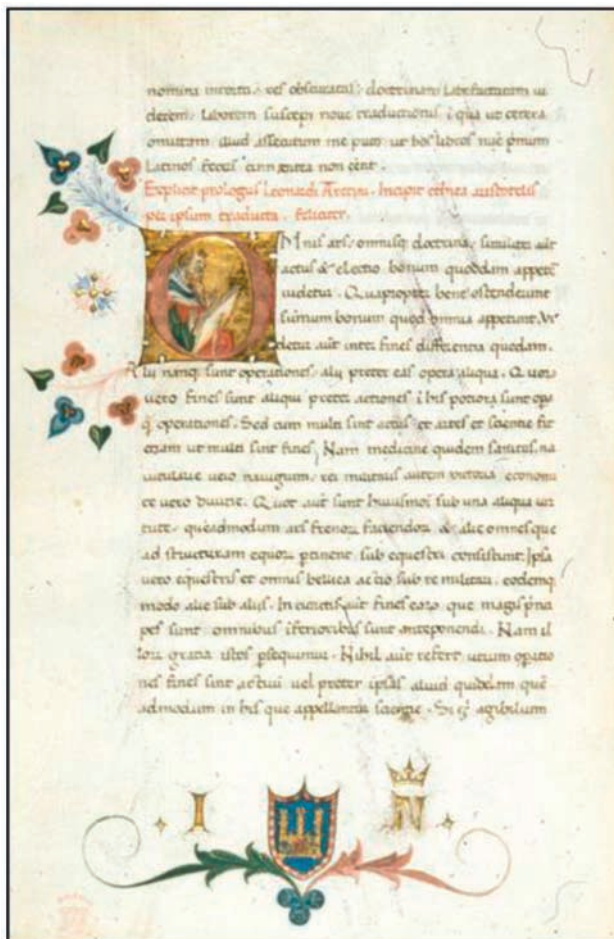 nomina inversa, res obscuratas, doctrinam labefactatam vi
derem. Laborem suscepi nove traductionis i qua ut cetera
omittam aliud assecutum me puto ut hos libros nuc primum
Latinos feceri cum antea non eent.
Explicit prologus Leonardi Aretini. Incipit ethica aristotelis
per ipsum traducta. feliciter.
OMnis ars, omnisq doctrina, similiter aut
actus & electio bonum quoddam appetē
videtur. Quapropter bene ostenderunt
summum bonum quod omnia appetunt. Vi
detur aut inter fines differentia quedam.
Alij nanq sunt operationes, alij preter eas opera aliqua. Quor
vero fines sunt aliqui preter actiones, i his potiora sunt opa
q operationes. Sed cum multi sint actus et artes et scientie fit
etiam ut multi sint fines, Nam medicine quidem sanitas, na
vicularie vero navigium, rei militaris autem victoria, economi
ce vero divitie. Quot aut sunt huiusmoi sub una aliqua vir
tute, queadmodum ars frenor faciendor & alie omnes que
ad structuram equor ptinent sub equestri consistunt. Ipsa
vero equestris et omnis bellica actio sub re militari, eodemq
modo alie sub aliis. In cunctis aut fines earo que magis prīci
pes sunt omnibus iferioribus sunt anteponendi. Nam il
lor gratia istos psequimur. Nihil aut refert utrum opatio
nes fines sint actuū vel preter ipsas aliud quidam quē
admodum in his que appellantur scientie. Si q agibilium
I N